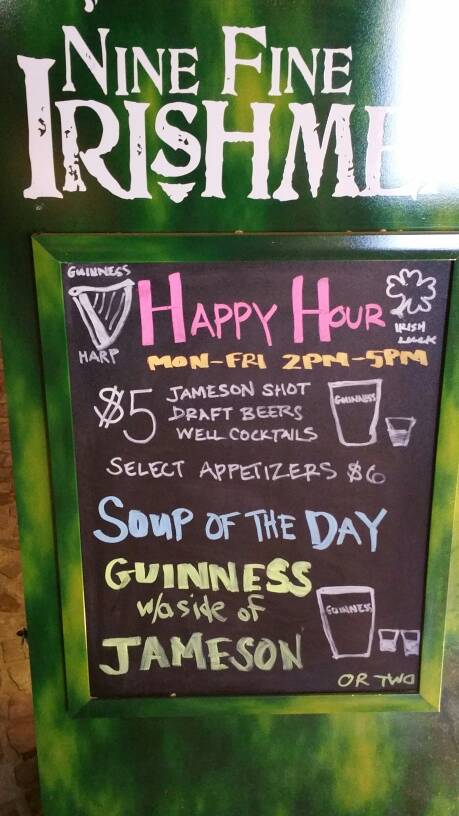 NINE FINE
IRISHME
GUINNESS
HARP
HAPPY HOUR
IRISH
LUCK
MON-FRI 2PM-5PM
$5
JAMESON SHOT
DRAFT BEERS
WELL COCKTAILS
GUINNESS
SELECT APPETIZERS $6
SOUP OF THE DAY
GUINNESS
w/a side of
JAMESON
GUINNESS
OR TWO